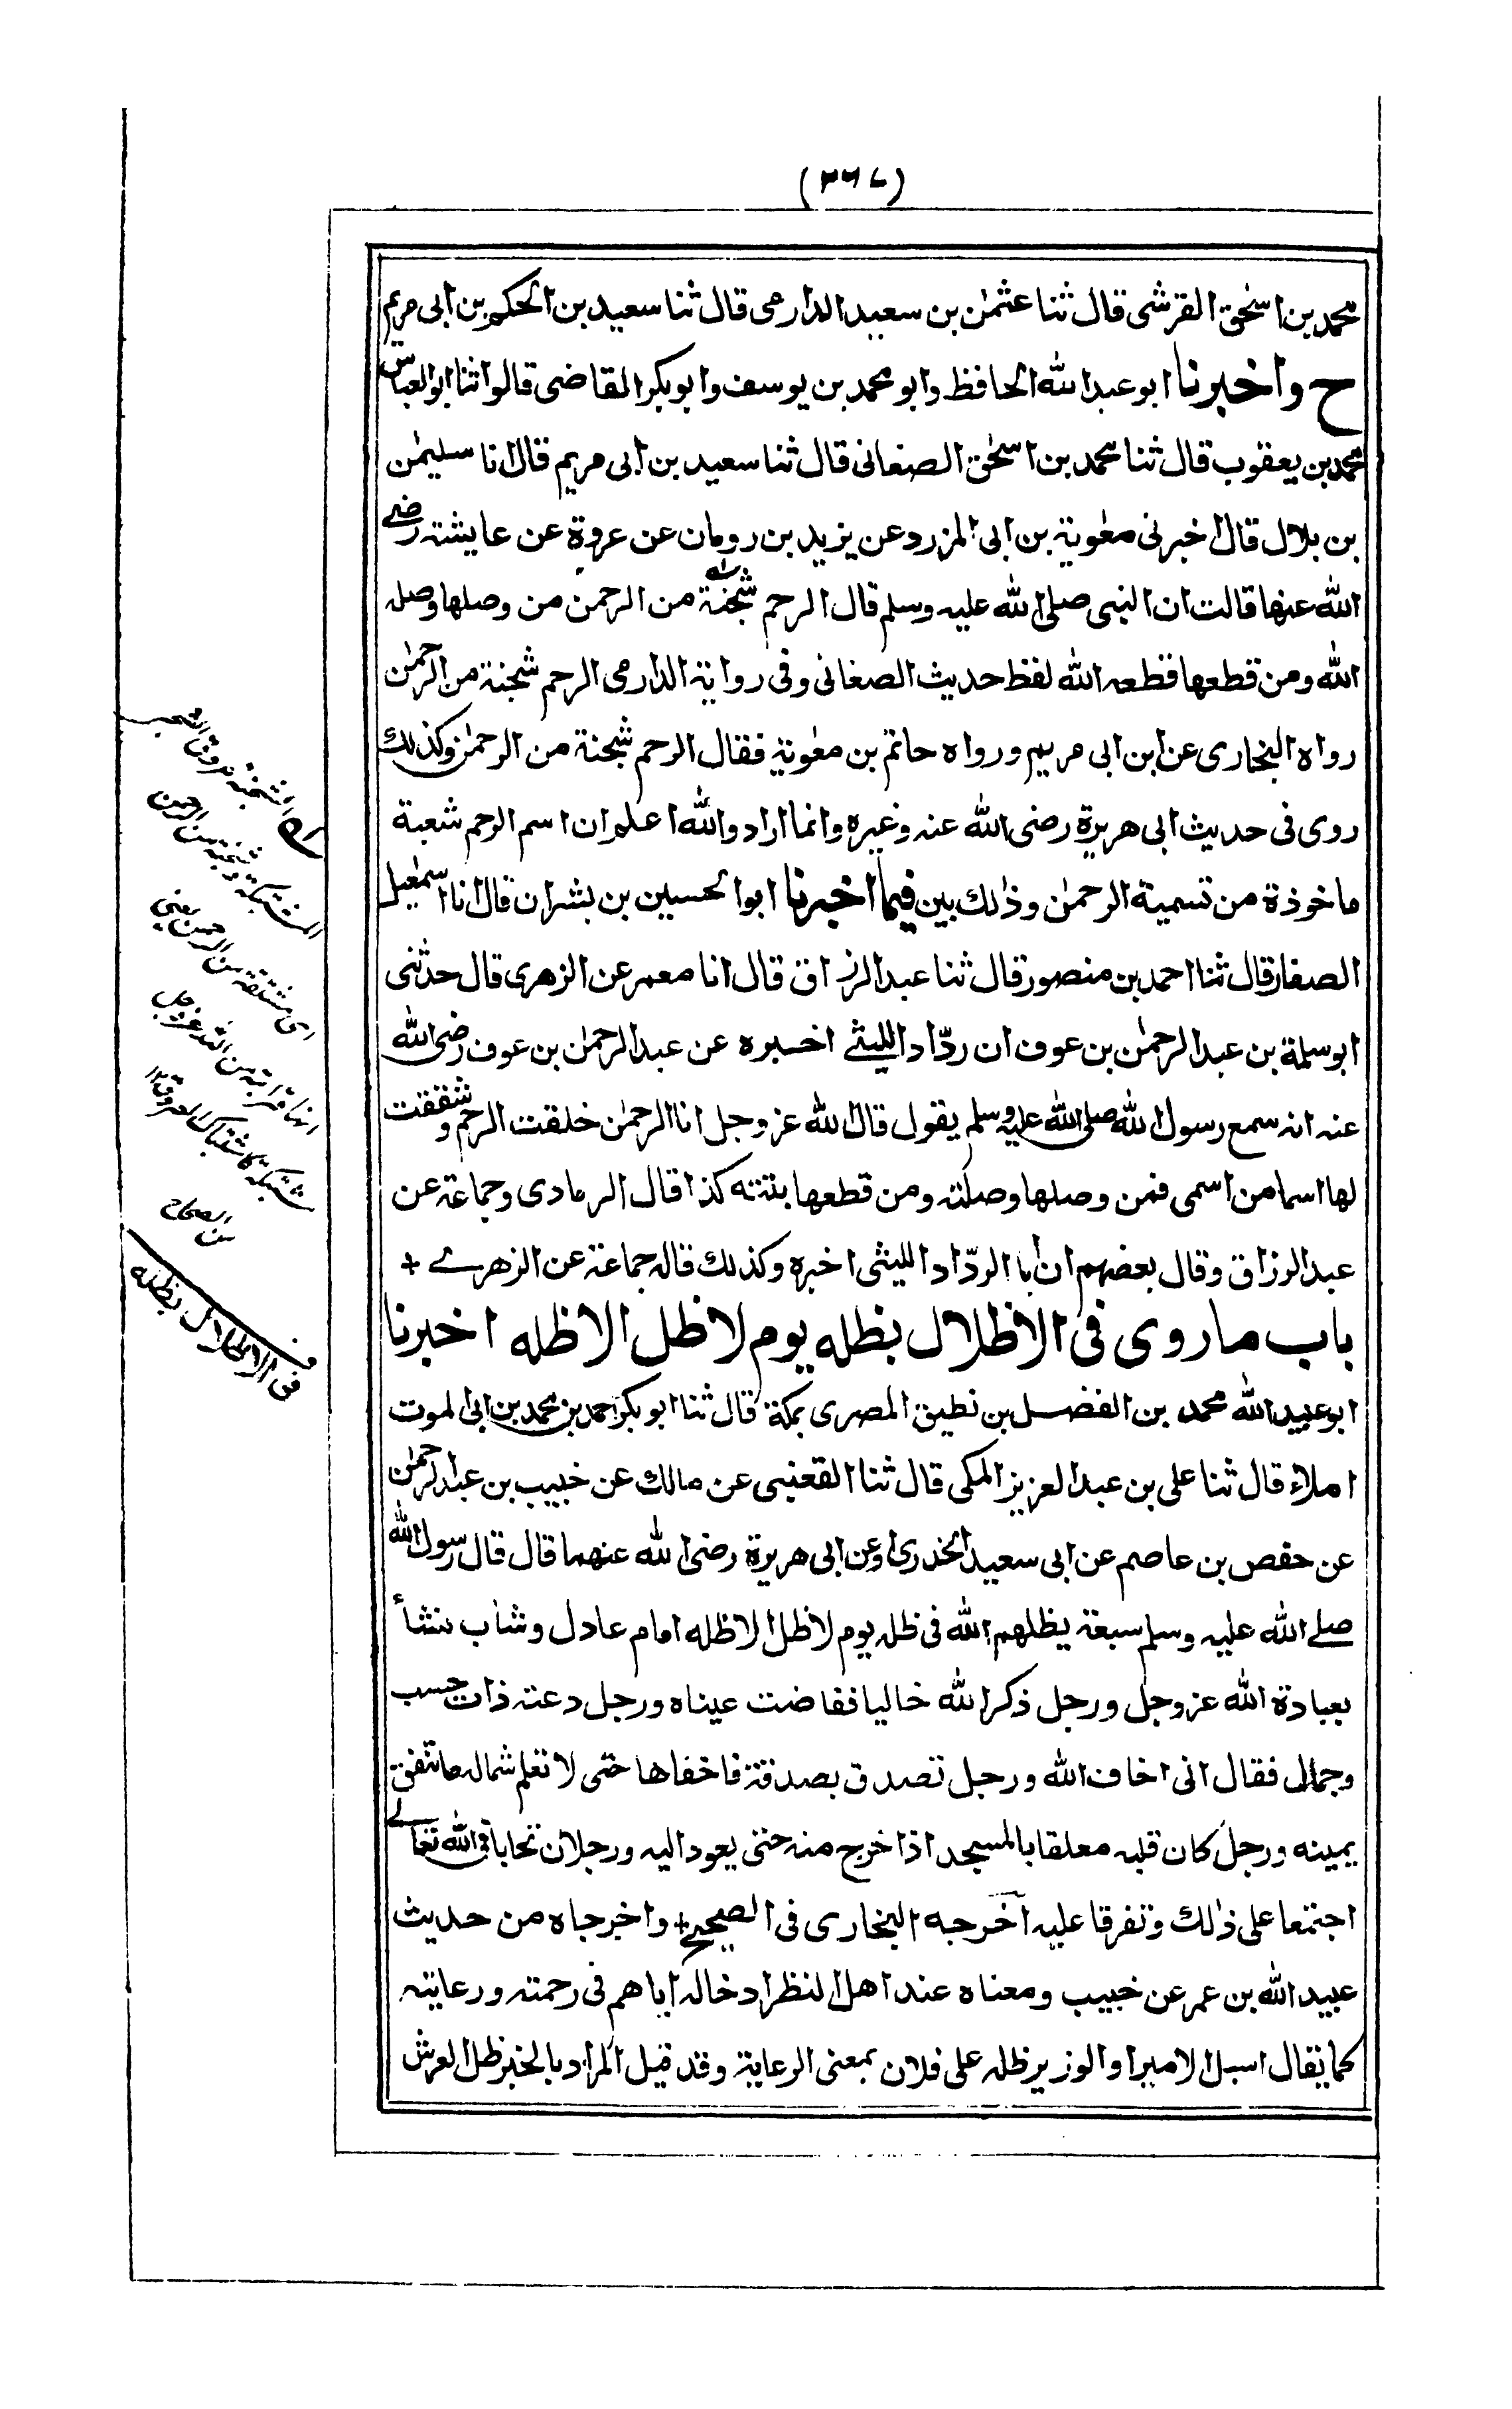 (٣٦٧)
محمد بن اسحٰق القرشى قال ثنا عثمٰن بن سعيد الدارمى قال ثنا سعيد بن الحكم بن ابى مريم
ح واخبرنا ابو عبد الله الحافظ وابو محمد بن يوسف وابو بكر القاضى قالوا ثنا ابو العباس
محمد بن يعقوب قال ثنا محمد بن اسحٰق الصغانى قال ثنا سعيد بن ابى مريم قال انا سليمٰن
بن بلال قال اخبرنى معٰوية بن ابى المزرد عن يزيد بن رومان عن عروة عن عايشة رضے
الله عنها قالت ان النبى صلى الله عليه وسلم قال الرحم شجنة من الرحمن من وصلها وصله
الله ومن قطعها قطعه الله لفظ حديث الصغانى وفى رواية الدارمى الرحم شجنة من الرحمٰن
رواه البخارى عن ابن ابى مريم ورواه حاتم بن معٰوية فقال الرحم شجنة من الرحمٰن وكذلك
روى فى حديث ابى هريرة رضى الله عنه وغيره وانما اراد والله اعلم ان اسم الرحم شعبة
ماخوذة من تسمية الرحمٰن وذلك بين فيما اخبرنا ابو الحسين بن بشران قال انا اسمٰعيل
الصفار قال ثنا احمد بن منصور قال ثنا عبد الرزاق قال انا معمر عن الزهرى قال حدثنى
ابو سلمة بن عبد الرحمٰن بن عوف ان ردّاد الليثے اخبره عن عبد الرحمٰن بن عوف رضى الله
عنه انه سمع رسول الله صلى الله عليه وسلم يقول قال الله عز وجل انا الرحمٰن خلقت الرحم وشققت
لها اسما من اسمى فمن وصلها وصلته ومن قطعها بتته كذا قال الرمادى وجماعة عن
عبد الرزاق وقال بعضهم ان ابا الردّاد الليثى اخبره وكذلك قاله جماعة عن الزهرے +
باب ما روى فى الاظلال بظله يوم لا ظل الا ظله اخبرنا
ابو عبيد الله محمد بن الفضل بن نظيف المصرى بمكة قال ثنا ابو بكر احمد بن محمد بن ابى الموت
املاء قال ثنا على بن عبد العزيز المكى قال ثنا القعنبى عن مالك عن خبيب بن عبد الرحمٰن
عن حفص بن عاصم عن ابى سعيد الخدرى او عن ابى هريرة رضى الله عنهما قال قال رسول الله
صلے الله عليه وسلم سبعة يظلهم الله فى ظله يوم لا ظل الا ظله امام عادل وشاب نشأ
بعبادة الله عز وجل ورجل ذكر الله خاليا ففاضت عيناه ورجل دعته ذات حسب
وجمال فقال انى اخاف الله ورجل تصدق بصدقة فاخفاها حتى لا تعلم شماله ما تنفق
يمينه ورجل كان قلبه معلقا بالمسجد اذا خرج منه حتى يعود اليه ورجلان تحابا فى الله تعالے
اجتمعا على ذلك وتفرقا عليه اخرجه البخارى فى الصحيح + واخرجاه من حديث
عبيد الله بن عمر عن خبيب ومعناه عند اهل النظر ادخاله اياهم فى رحمته ورعايته
كما يقال اسبل الامير او الوزير ظله على فلان بمعنى الرعاية وقد قيل المراد بالخبر ظل العرش
الشجنة عروق الشجر
المشتبكة وشجنة من الرحمن
اى مشتقة من الرحمن يعنى
انها قرابة من الله عز وجل
مشتبكة كاشتباك العروق ١٢
من الصحاح
فى الاظلال بظله